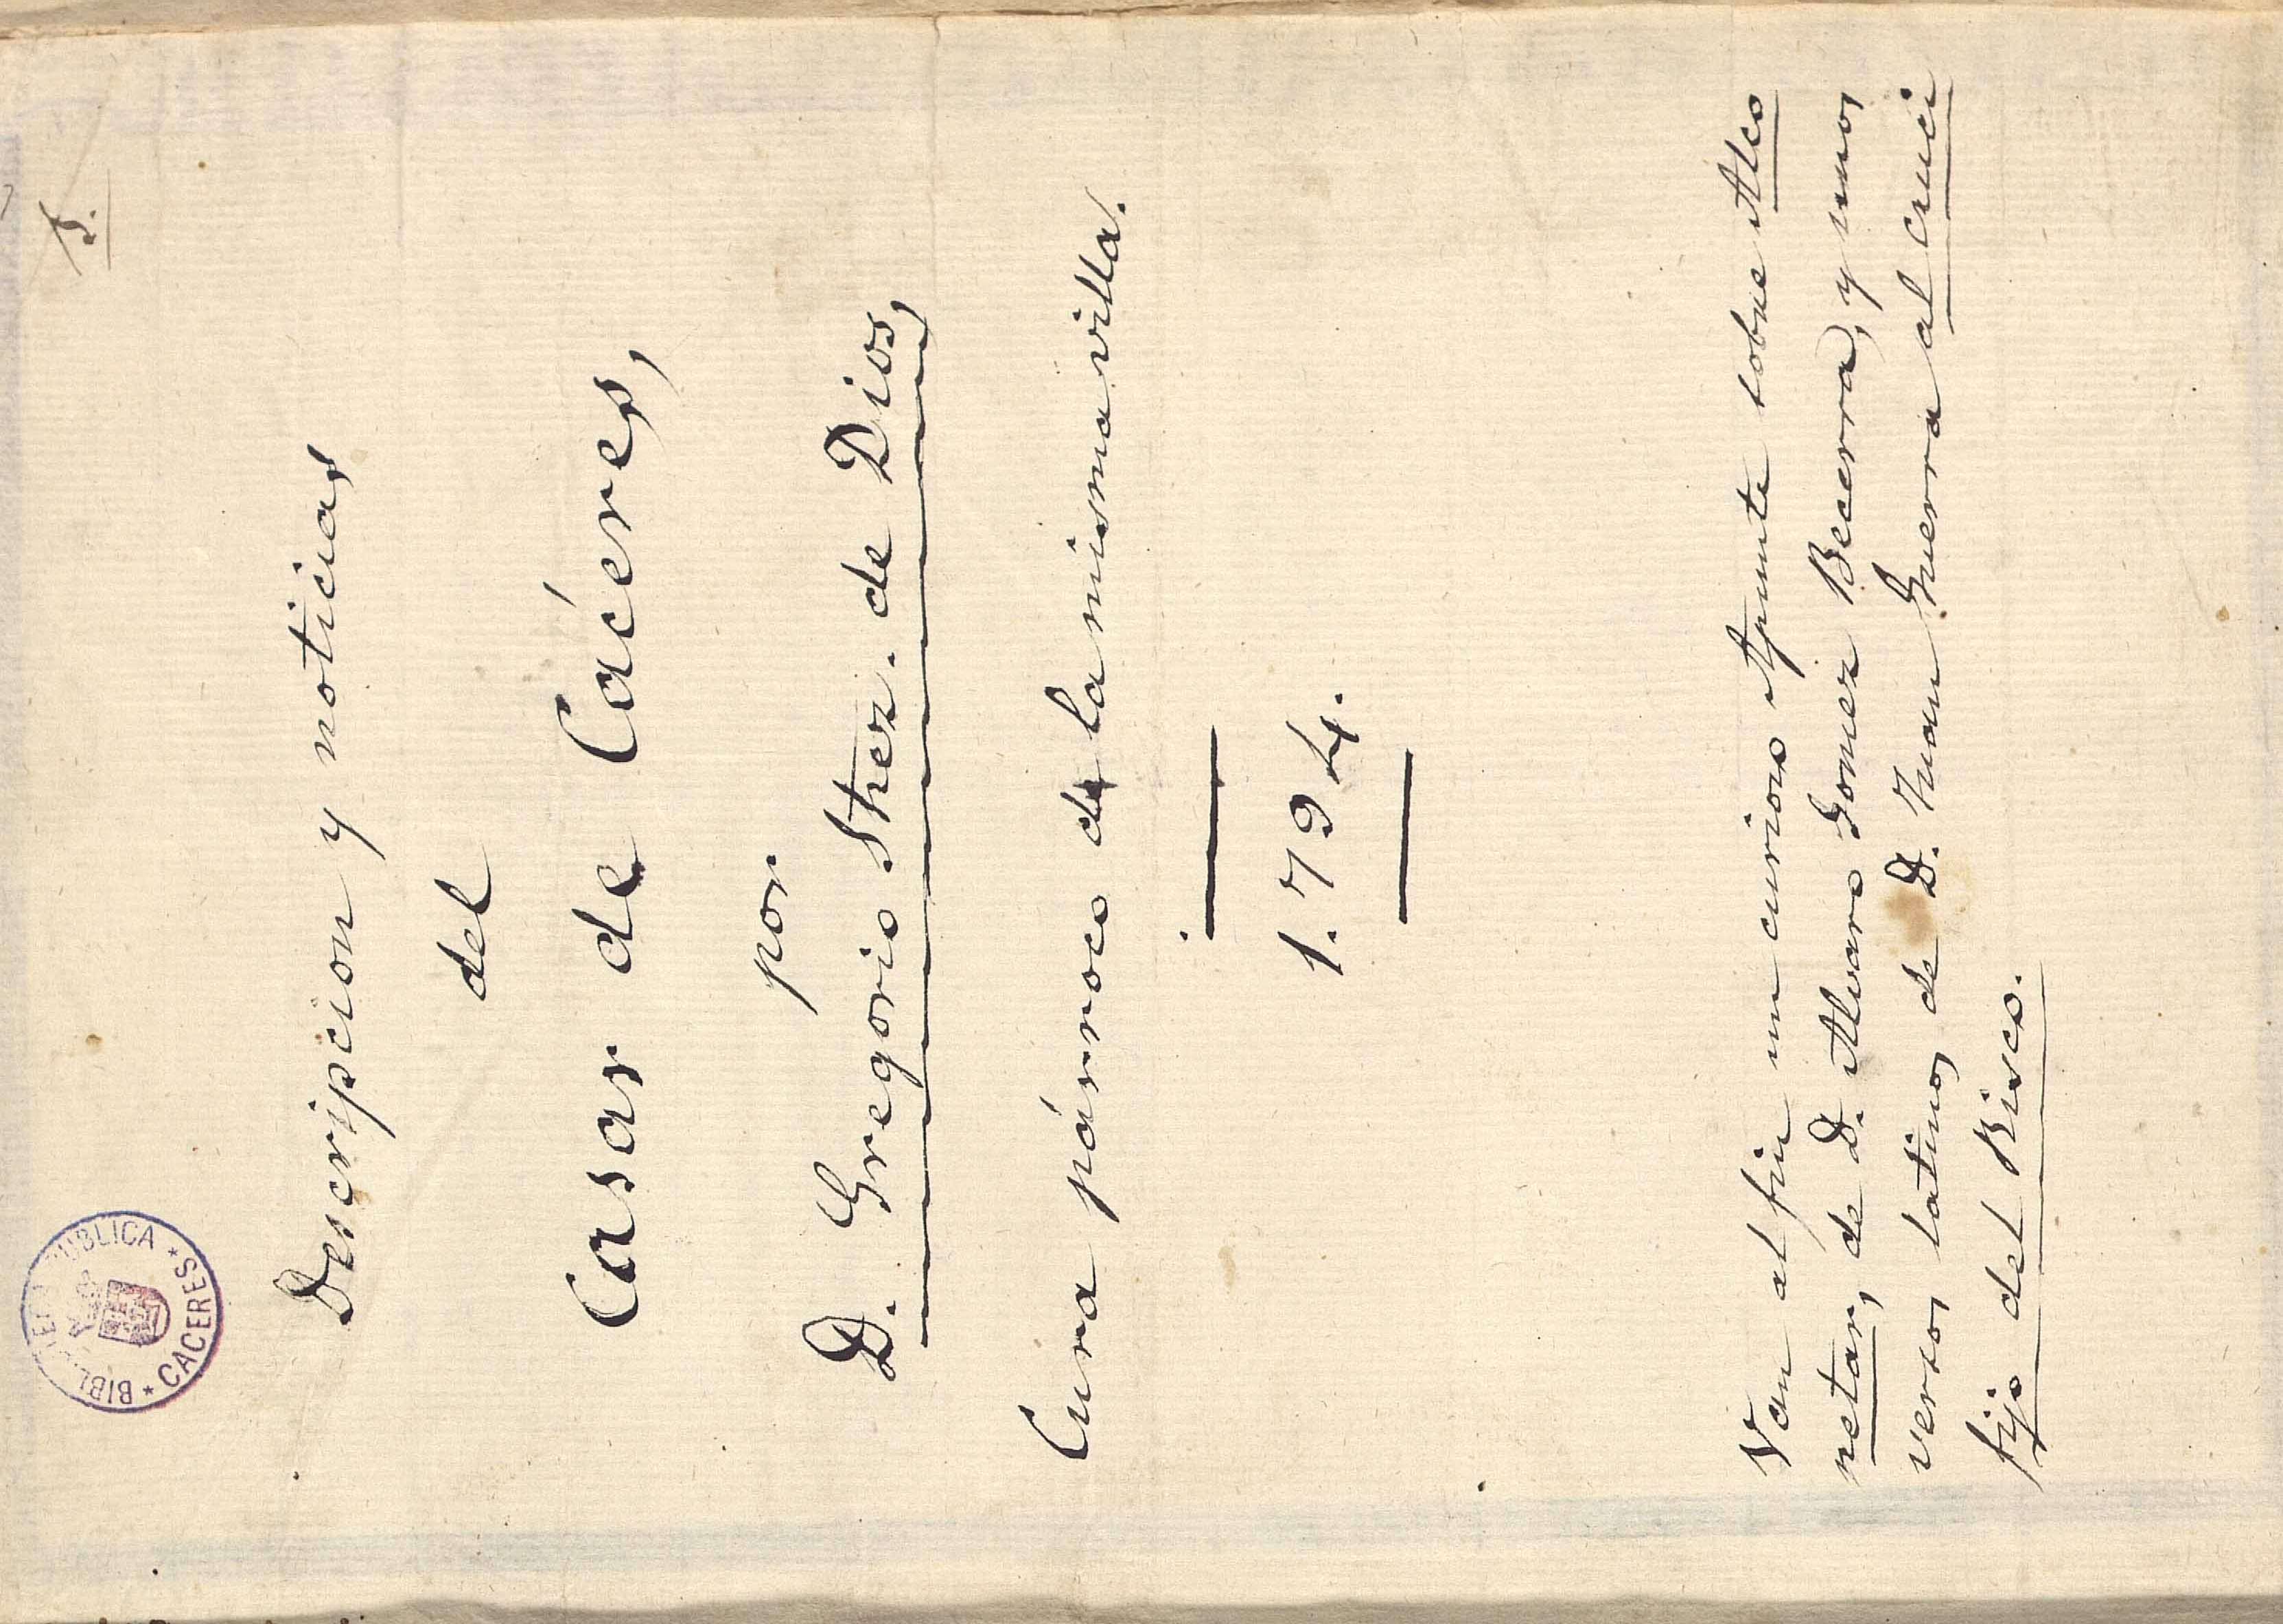 1.
Descripcion y noticias
del
Casar de Cáceres,
por
D. Gregorio Shez. de Dios,
Cura párroco de la misma villa.
1.794.
Van al fin un curioso Apunte sobre Alco
netar, de D. Alvaro Gomez Becerra, y unos
versos latinos de D. Juan Guerra al cruci
fijo del Risco.
PUBLICA * CACERES * BIBL